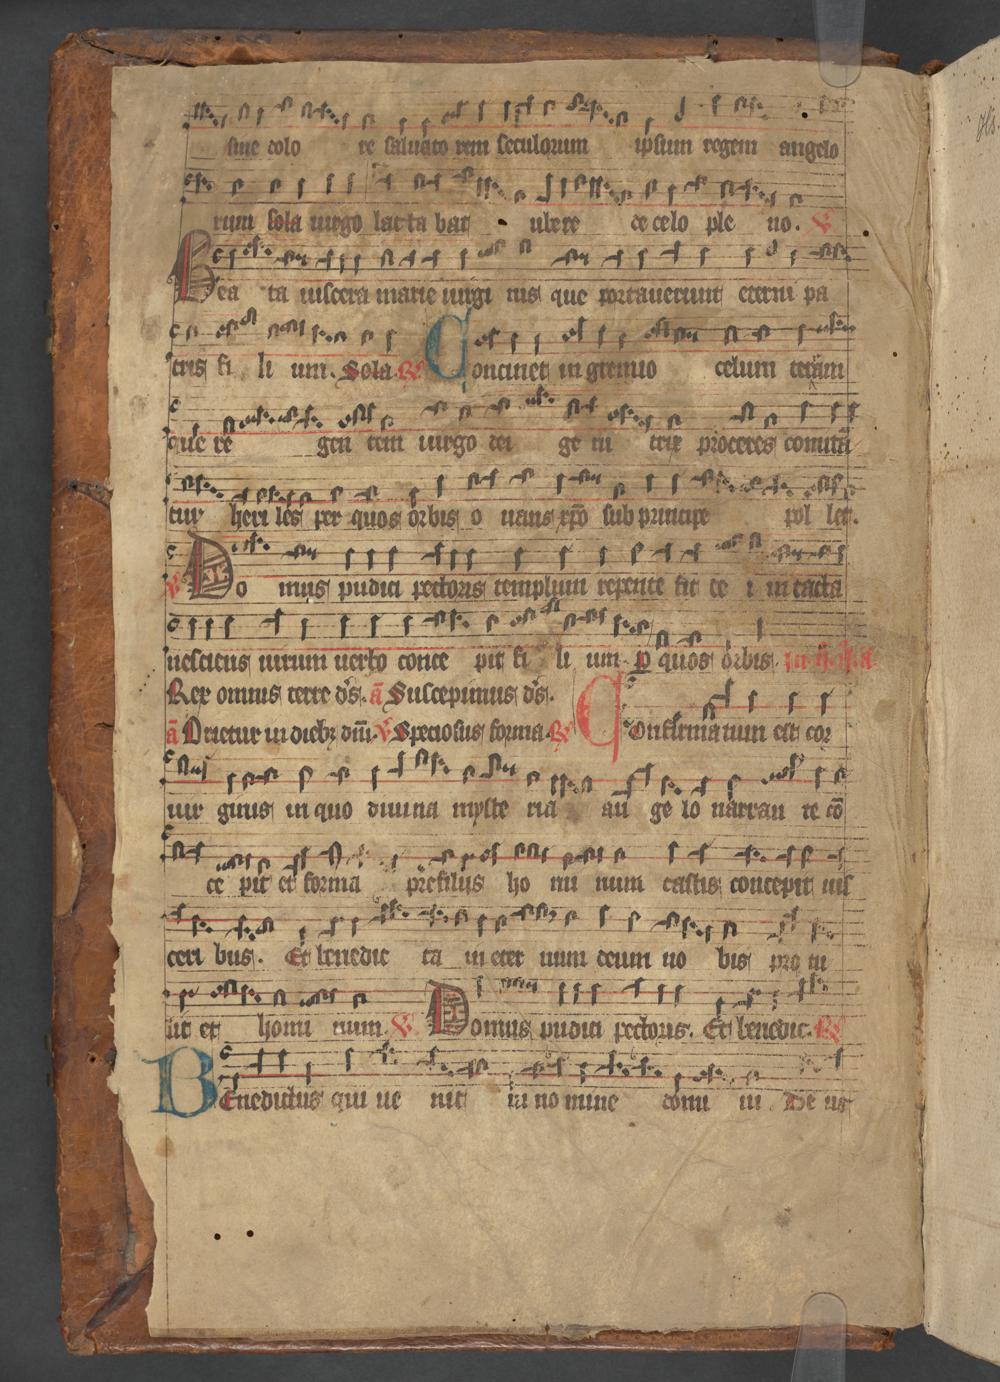 sine dolo re saluato rem seculorum ipsum regem angelo
rum sola uirgo lacta bat ubere de celo ple no. V
Bea ta uiscera marie uirgi nis que portauerunt eterni pa
tris fi li um. Sola. R Continet in gremio celum terram
que re gen tem uirgo dei ge ni trix proceres comitā
tur heri les per quos orbis o uans xp̄o sub principe pol let.
V Do mus pudici pectoris templum repente fit de i intacta
nesciens uirum uerbo conce pit fi li um. p quos orbis.
Rex omnis terre d̄s. ā Suscepimus d̄s.
ā Orietur in dieb; dn̄i. V Speciosus forma. R Confirmatum est cor
uir ginis in quo diuina myste ria an ge lo narran te cō
ce pit et forma pre filiis ho mi num castis concepit uis
ceri bus. Et benedic ta in eter num deum no bis pro tu
lit et homi nem. V Domus pudici pectoris. Et benedic. R
Benedictus qui ue nit in no mine domi ni De us